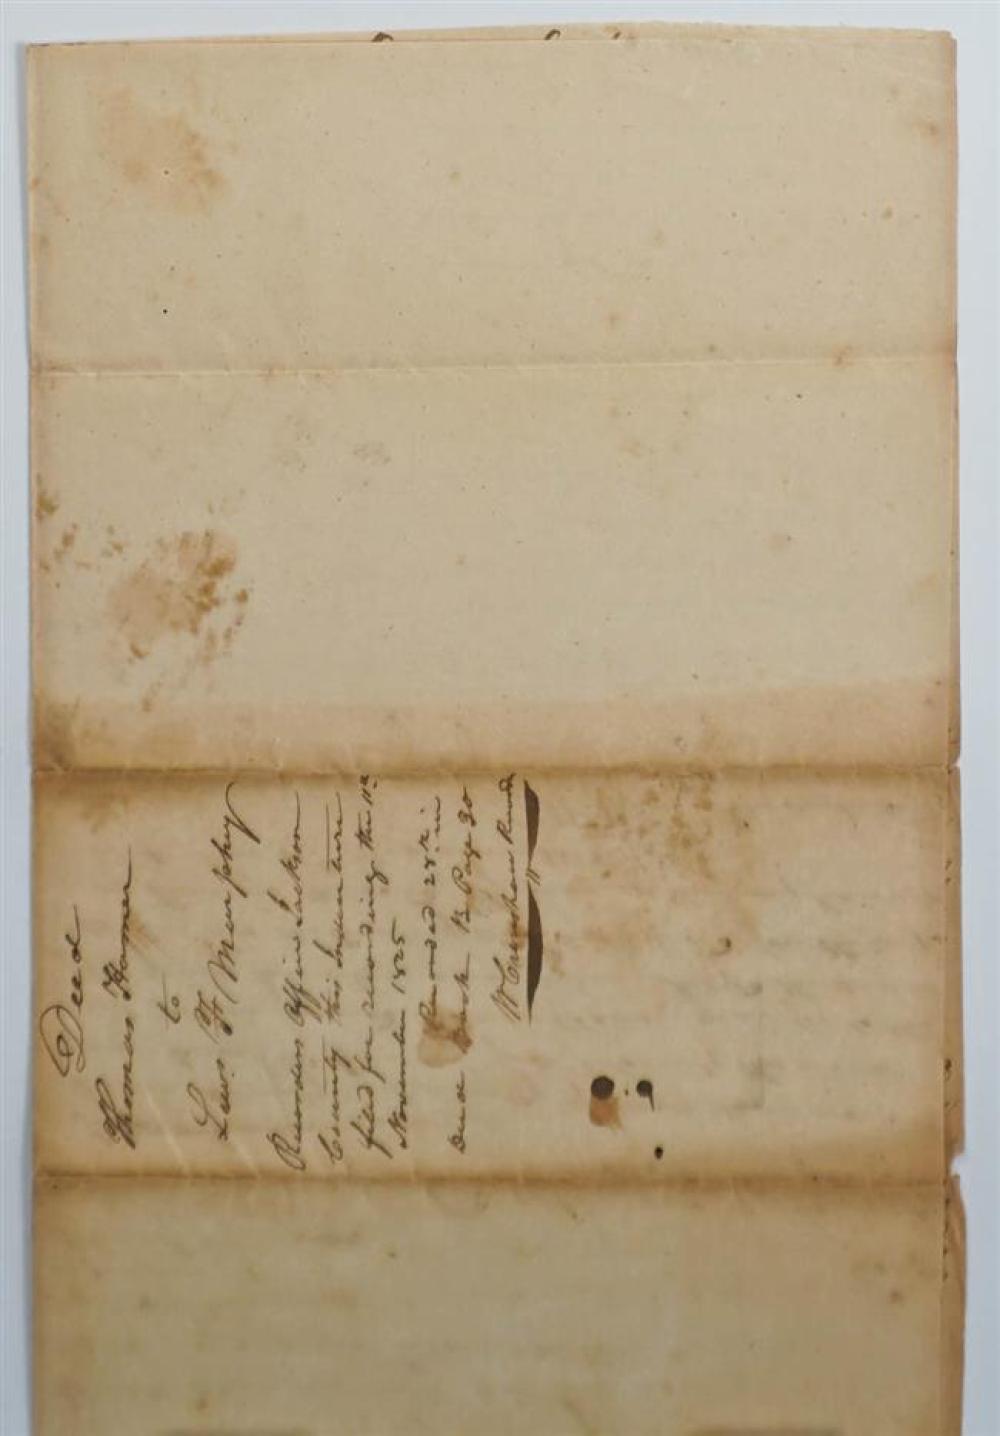 Deed
Thomas Hamer
to
Lewis F Murphey
Recorders Office Jackson
County this Indenture
filed for recording the 11th
November 1825
Recorded 28th in
Deed Book B. Page 30
W Crenshaw